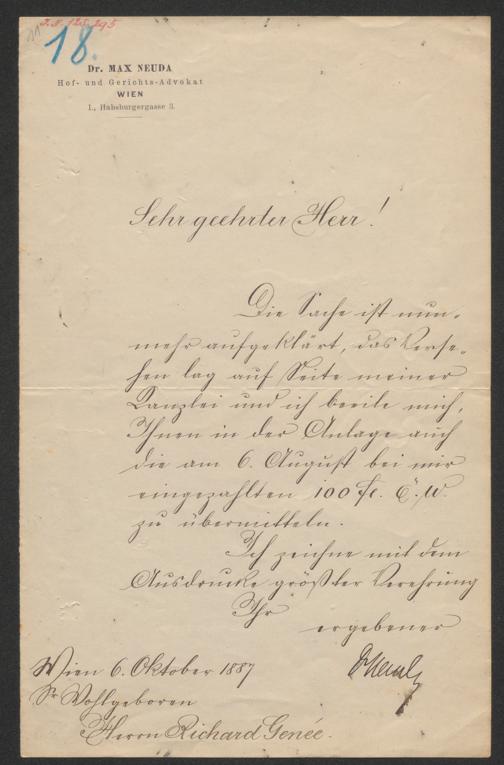 I.N. 125.295
18.
Dr. MAX NEUDA
Hof- und Gerichts-Advokat
WIEN
I., Habsburgergasse 3.
Sehr geehrter Herr!
Die Sache ist nun-
mehr aufgeklärt, das Verse-
hen lag auf Seite meiner
Kanzlei und ich beeile mich,
Ihnen in der Anlage auch
die am 6. August bei mir
eingezahlten 100 fl. Ö. W.
zu übermitteln.
Ich zeichne mit dem
Ausdrucke größter Verehrung
Ihr
ergebener
DrNeuda
Wien 6. Oktober 1887
Sr Wohlgeboren
Herrn Richard Genée.